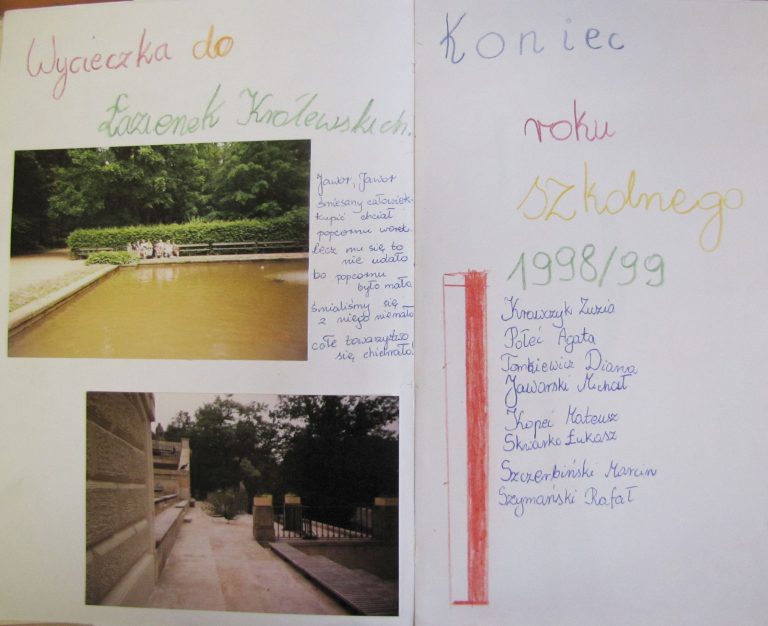 Wycieczka do
Łazienek Królewskich.
Jawor, Jawor
śmieszny całowiek-
kupić chciał
popcornu worek
lecz mu się to
nie udało
bo popcornu
było mało
śmialiśmy się
z niego niemało
całe towarzystwo
się chichrało!
Koniec
roku
szkolnego
1998/99
Krawczyk Zuzia
Połeć Agata
Tomkiewicz Diana
Jaworski Michał
Kopeć Mateusz
Skwarko Łukasz
Szczerbiński Marcin
Szymański Rafał